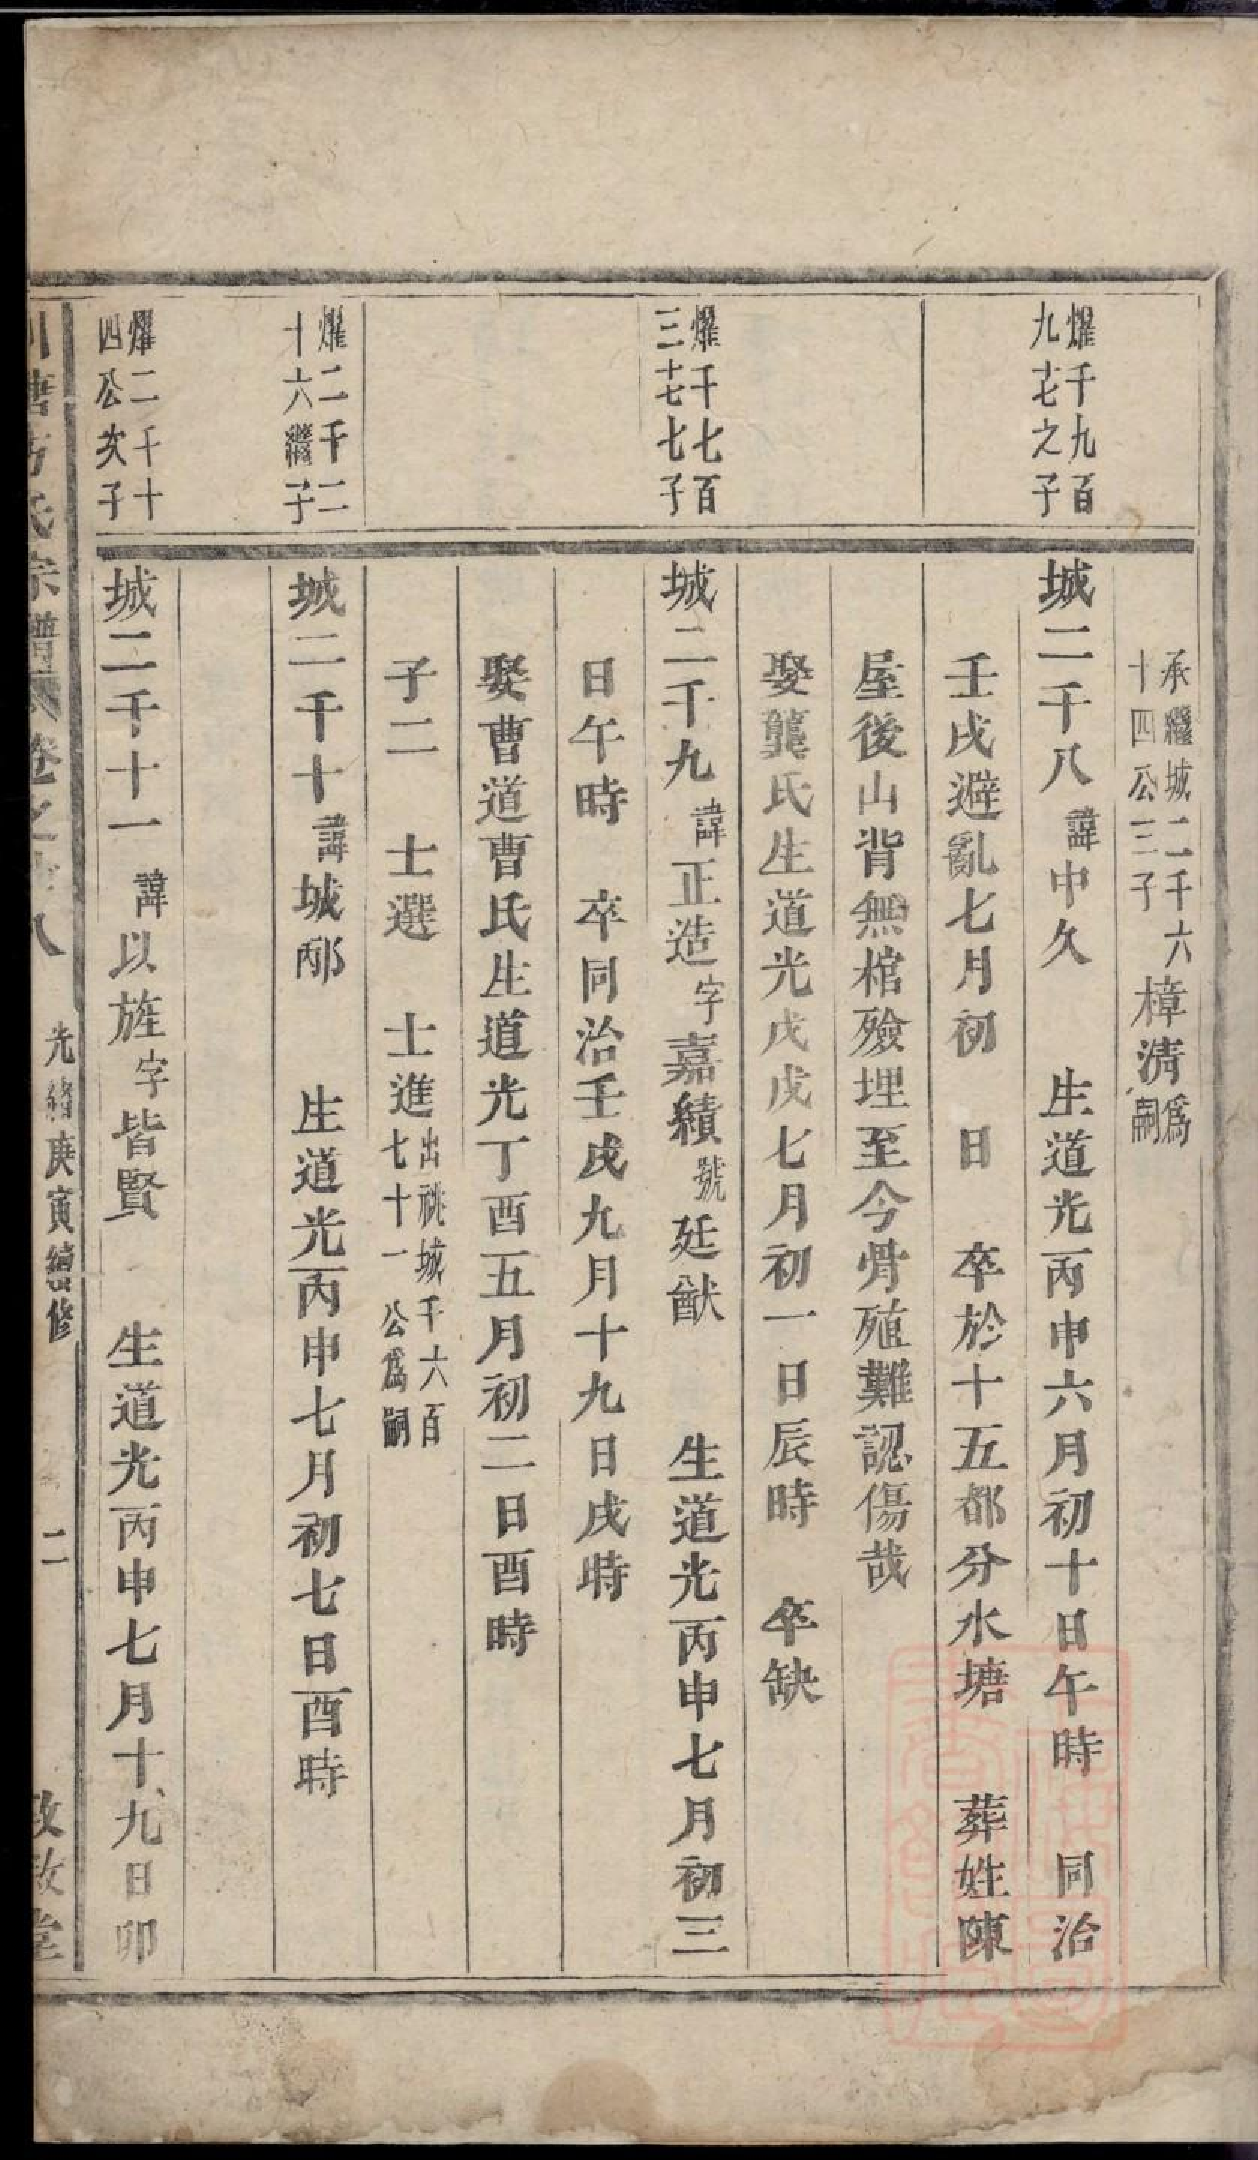 承繼城二千六
十四公三子
樟淸爲嗣
燿千九百
九十七之子
城二千八諱中久　生道光丙申六月初十日午時　同治
壬戌避亂七月初　日　卒於十五都分水塘　葬姓陳
屋後山背無棺殮埋至今骨殖難認傷哉
娶龔氏生道光戊戌七月初一日辰時　卒缺
燿千七百
三十七七子
城二千九諱正造字嘉績號廷猷　生道光丙申七月初三
日午時　卒同治壬戌九月十九日戌時
娶曹道曹氏生道光丁酉五月初二日酉時
子二　士選　士進出祧城千六百
七十一公爲嗣
燿二千二
十六繼子
城二千十諱城邴　生道光丙申七月初七日酉時
燿二千十
四公次子
城二千十一諱以旌字皆賢　生道光丙申七月十九日卯
塘方氏宗譜　卷之十八　光緒庚寅續修　二　敦敘堂